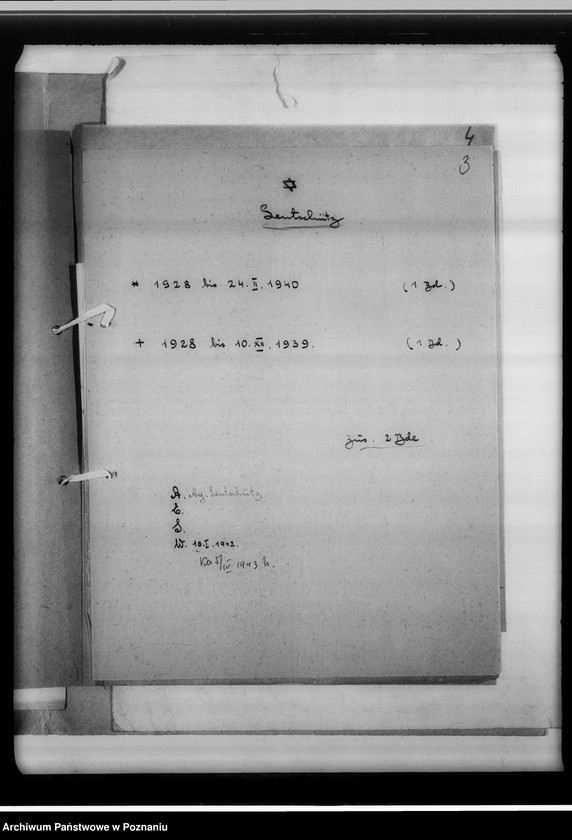 4
3
✡
Lentschütz
* 1928 bis 24.II.1940 (1 Bd.)
+ 1928 bis 10.XII.1939. (1 Bd.)
zus. 2 Bde
A. Ag. Lentschütz
E.
S.
W. 10.I.1942.
IV 1943
Archiwum Państwowe w Poznaniu